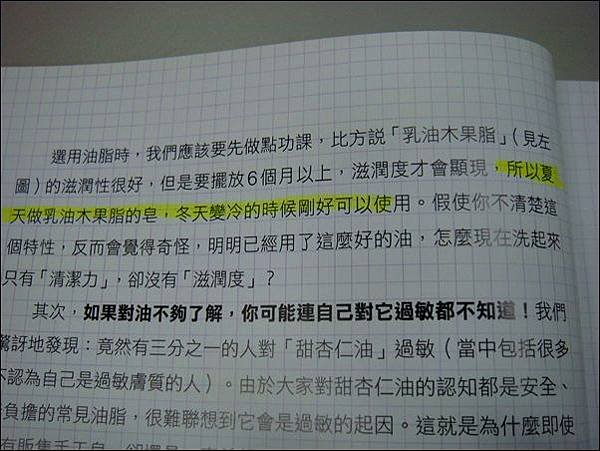 選用油脂時，我們應該要先做點功課，比方說「乳油木果脂」（見左
圖）的滋潤性很好，但是要擺放6個月以上，滋潤度才會顯現，所以夏
天做乳油木果脂的皂，冬天變冷的時候剛好可以使用。假使你不清楚這
個特性，反而會覺得奇怪，明明已經用了這麼好的油，怎麼現在洗起來
只有「清潔力」，卻沒有「滋潤度」？
其次，如果對油不夠了解，你可能連自己對它過敏都不知道！我們
驚訝地發現：竟然有三分之一的人對「甜杏仁油」過敏（當中包括很多
不認為自己是過敏膚質的人）。由於大家對甜杏仁油的認知都是安全、
負擔的常見油脂，很難聯想到它會是過敏的起因。這就是為什麼即使